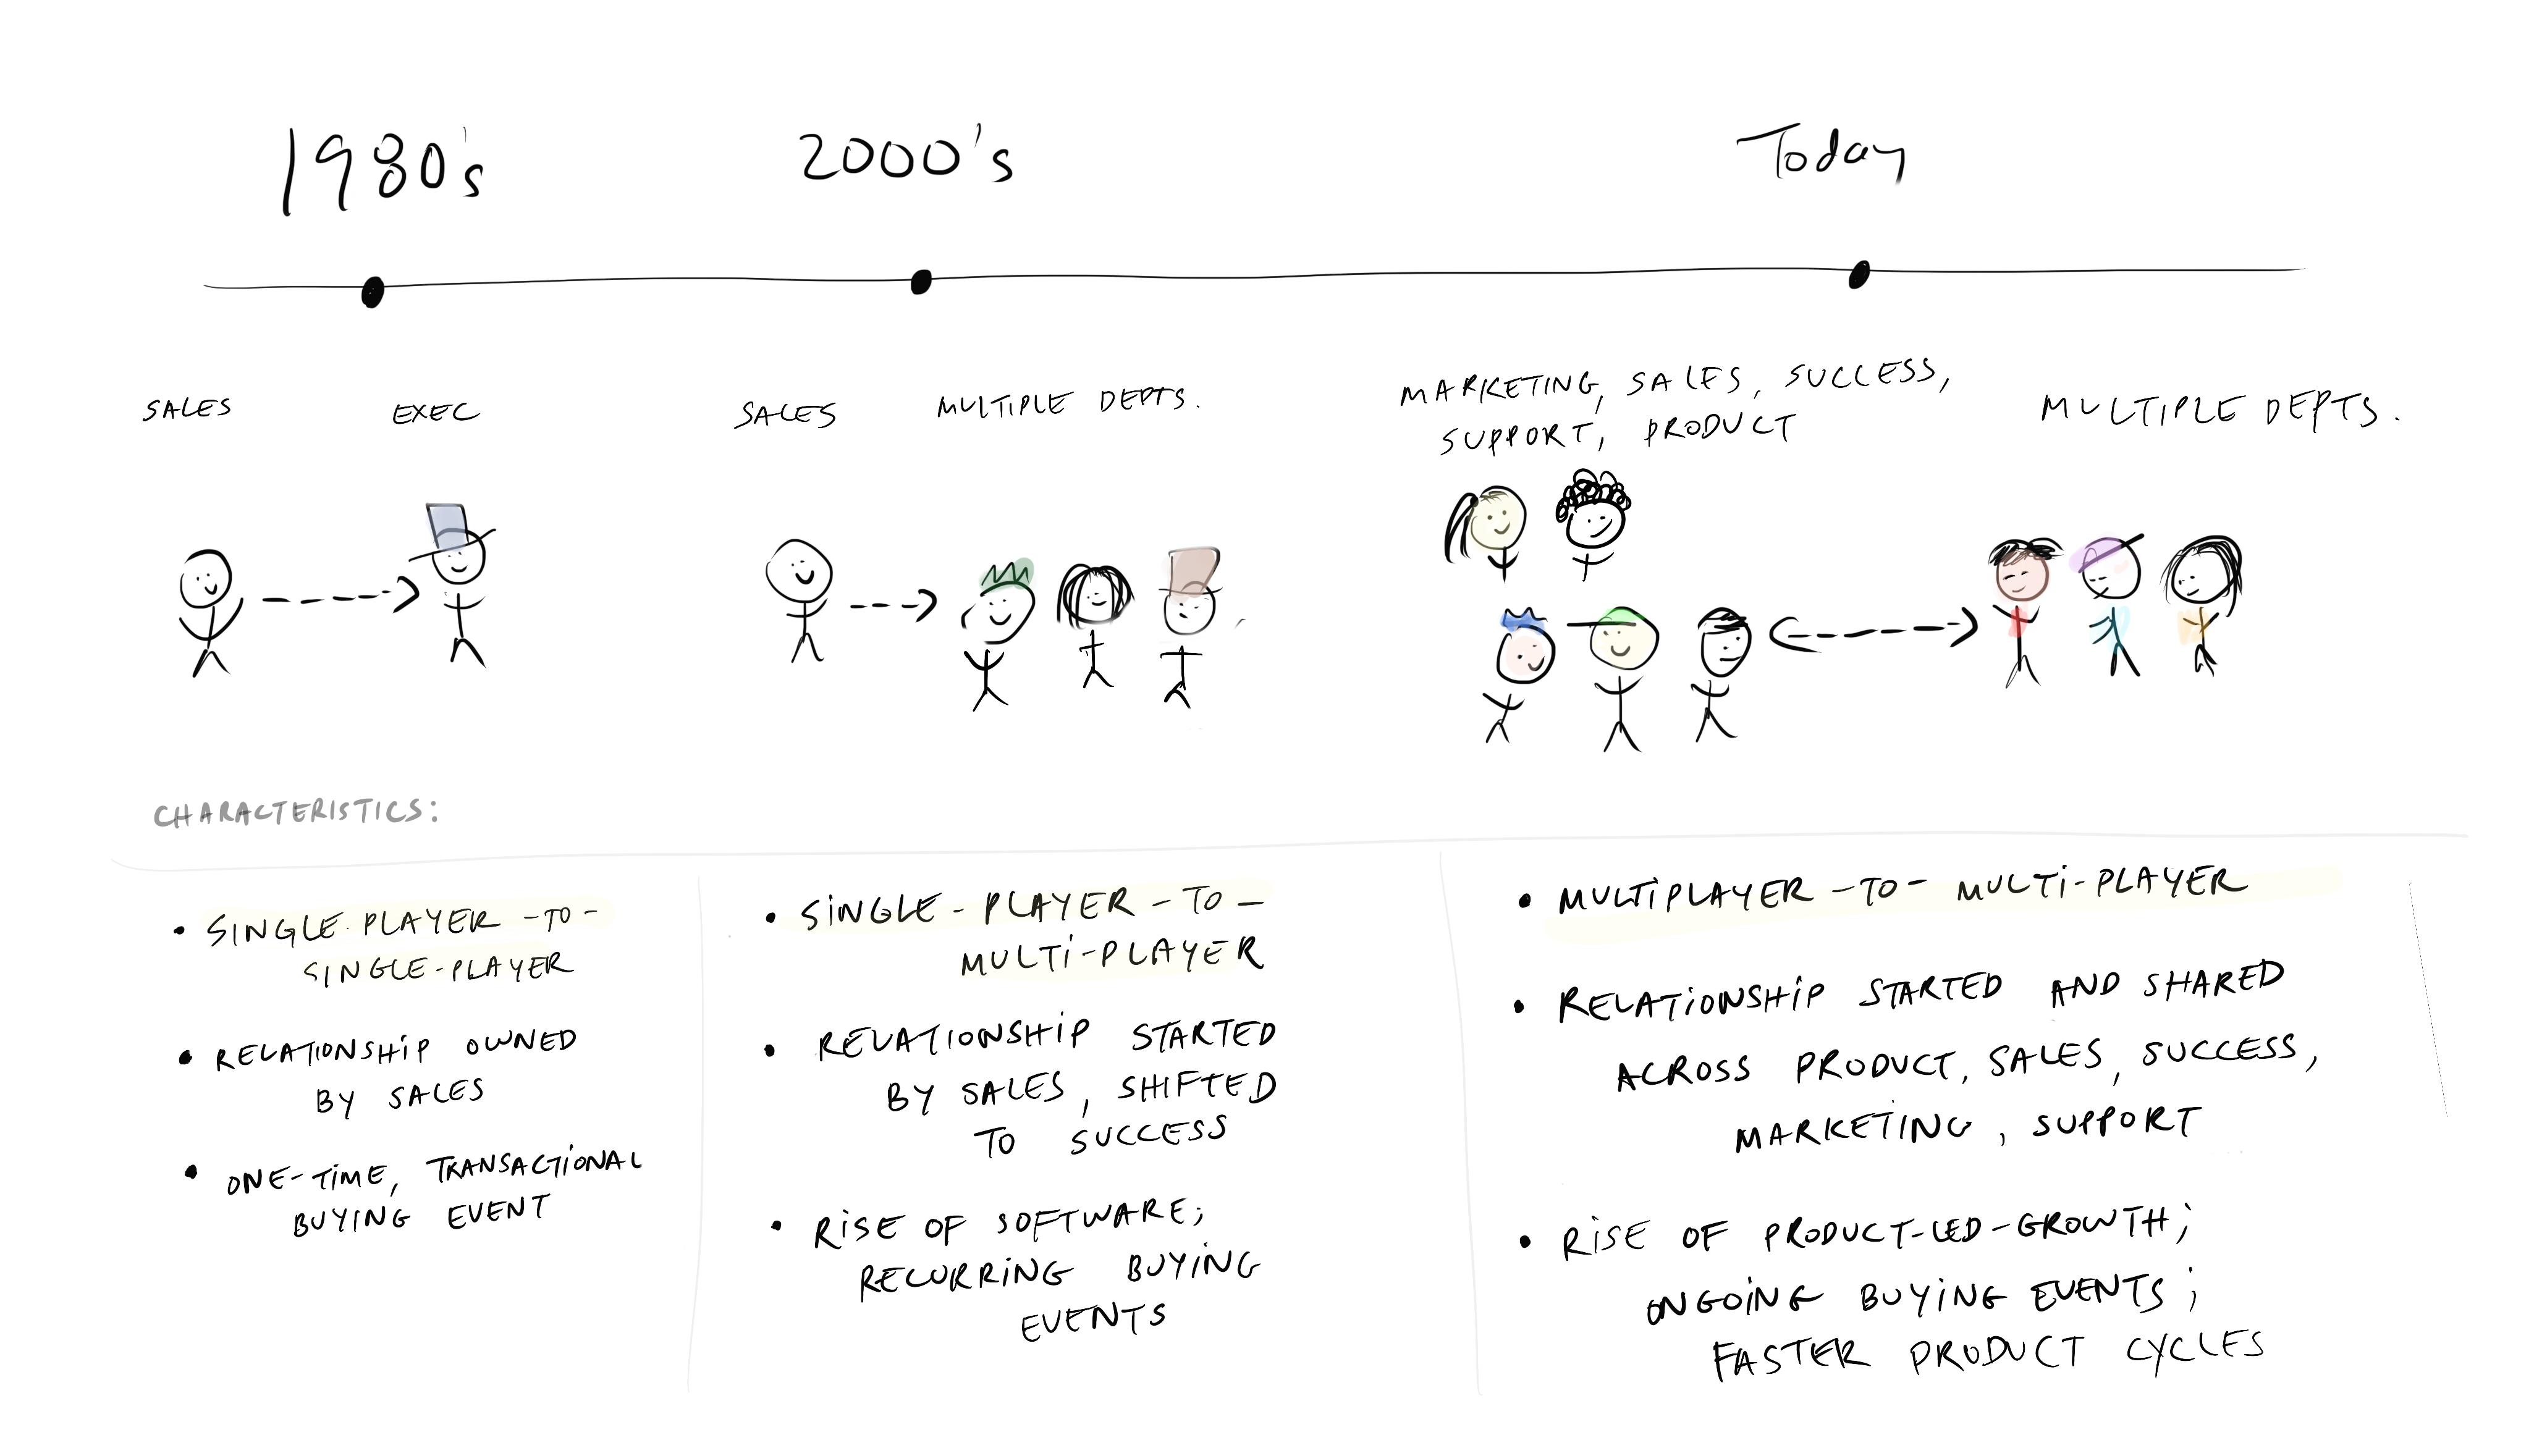 1980's
2000's
Today
SALES
EXEC
SALES
MULTIPLE DEPTS.
MARKETING, SALES, SUCCESS,
SUPPORT, PRODUCT
MULTIPLE DEPTS.
CHARACTERISTICS:
• SINGLE-PLAYER-TO-
SINGLE-PLAYER
• RELATIONSHIP OWNED
BY SALES
• ONE-TIME, TRANSACTIONAL
BUYING EVENT
• SINGLE-PLAYER-TO-
MULTI-PLAYER
• RELATIONSHIP STARTED
BY SALES, SHIFTED
TO SUCCESS
• RISE OF SOFTWARE;
RECURRING BUYING
EVENTS
• MULTIPLAYER-TO-MULTI-PLAYER
• RELATIONSHIP STARTED AND SHARED
ACROSS PRODUCT, SALES, SUCCESS,
MARKETING, SUPPORT
• RISE OF PRODUCT-LED-GROWTH;
ONGOING BUYING EVENTS;
FASTER PRODUCT CYCLES